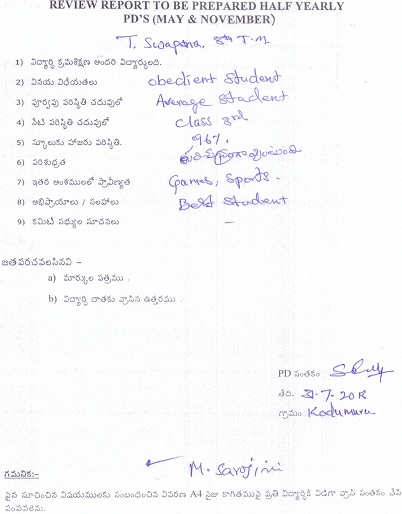 REVIEW REPORT TO BE PREPARED HALF YEARLY
PD'S (MAY & NOVEMBER)
T. Swapna, 8th T.M.
1) విద్యార్థి క్రమశిక్షణ అందరి విద్యార్థులది.
2) వినయ విధేయతలు obedient student
3) పూర్వపు పరిస్థితి చదువులో Average Student
4) నేటి పరిస్థితి చదువులో Class 3rd
5) స్కూలుకు హాజరు పరిస్థితి. 96%.
6) పరిశుభ్రత
7) ఇతర అంశములలో ప్రావీణ్యత Games, Sports.
8) అభిప్రాయాలు / సలహాలు Best Student
9) కమిటి సభ్యుల సూచనలు –
జతపరచవలసినవి –
a) మార్కుల పత్రము.
b) విద్యార్థి దాతకు వ్రాసిన ఉత్తరము.
PD సంతకం
తేది. 31-7-2012
గ్రామం Kodumuru
M. Sarojini
గమనిక:-
పైన సూచించిన విషయములకు సంబంధించిన వివరణ A4 సైజు కాగితముపై ప్రతి విద్యార్థికి విడిగా వ్రాసి సంతకం చేసి
పంపవలెను.